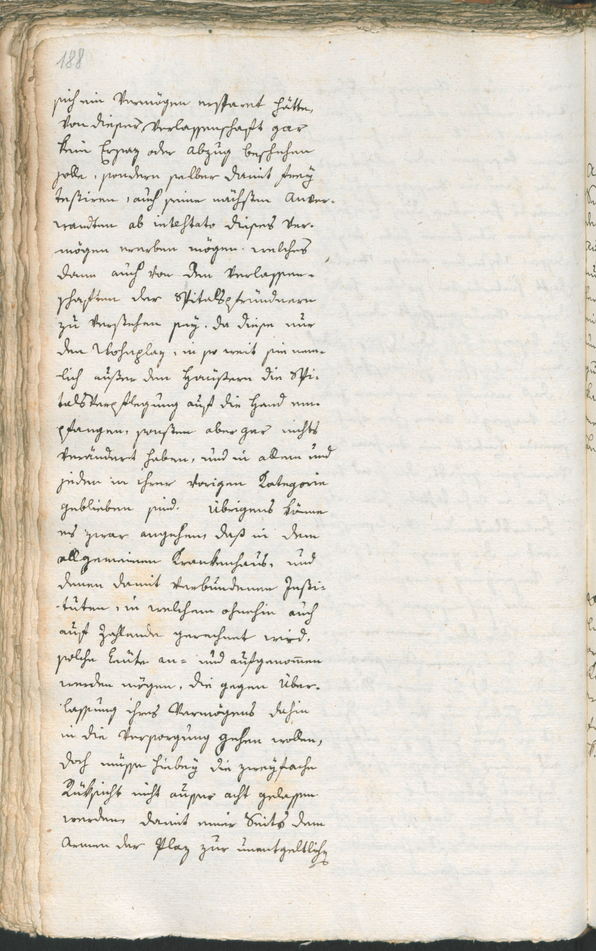 188
sich ein Vermögen ersparet hätte,
von dieser Verlassenschaft gar
kein Ersaz oder Abzug beschehen
solle, sondern selber damit frey
testiren, auch seine nächsten Anver-
wandten ab intestato dieses Ver-
mögen ererben mögen. welches
dann auch von den Verlassen-
schaften der Spitalspfründnern
zu verstehen sey. da diese nur
den Wohnplaz, in so weit sie nem-
lich außer den Häusern die Spi-
talsverpflegung auf die Hand em-
pfangen, sonsten aber gar nichts
verändert haben, und in allem und
jedem in ihrer vorigen Kategorie
geblieben sind. Übrigens könne
es zwar angehen, daß in dem
allgemeinen Krankenhaus, und
denen damit verbundenen Insti-
tuten, in welchem ohnehin auch
auf Zahlende gerechnet wird,
solche Leute an- und aufgenommen
werden mögen, die gegen Über-
lassung ihres Vermögens dahin
in die Versorgung gehen wollen,
doch müsse hiebey die zweyfache
Rüksicht nicht ausser acht gelassen
werden, damit einer Seits dem
Armen der Plaz zur unentgeltlich